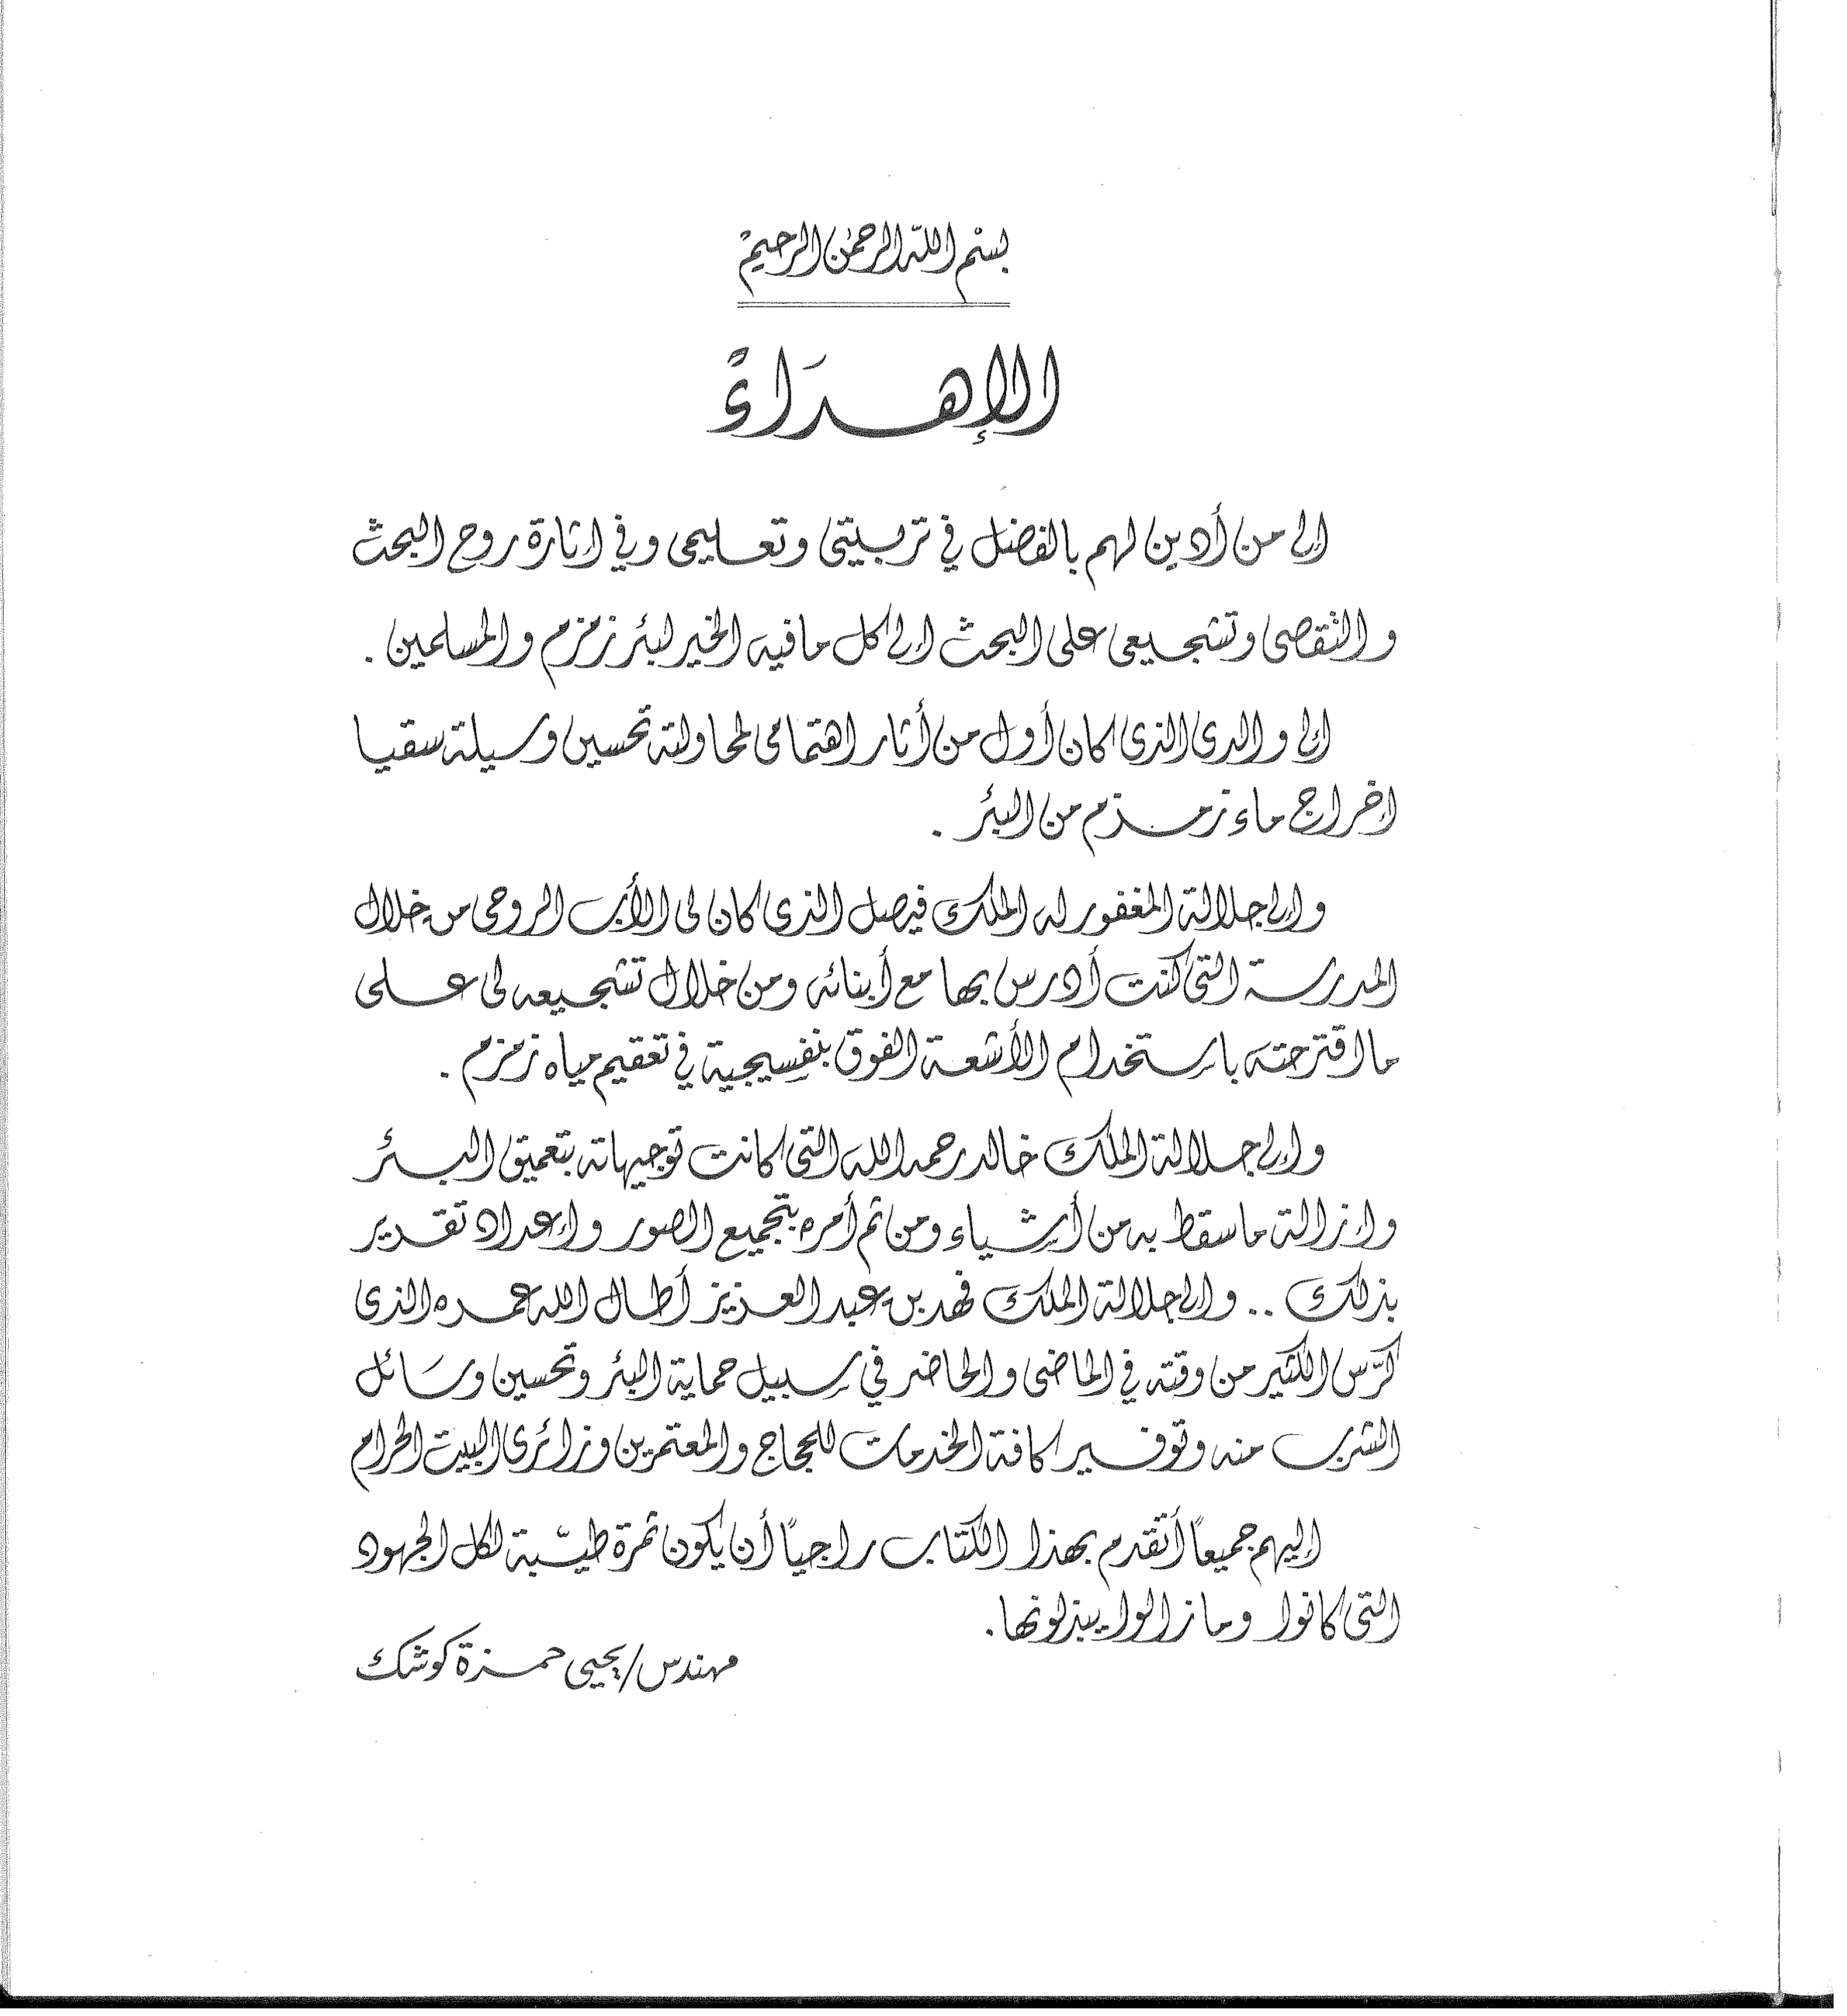 بسم الله الرحمن الرحيم
الإهداء
إلى من أدين لهم بالفضل في تربيتى وتعليمى وفي إثارة روح البحث
والتقصى وتشجيعى على البحث إلى كل مافيه الخير لبئر زمزم والمسلمين .
إلى والدى الذى كان أول من أثار اهتمامى لمحاولته تحسين وسيلة سقيا
إخراج ماء زمزم من البئر .
وإلى جلالة المغفور له الملك فيصل الذى كان لى الأب الروحى من خلال
المدرسة التى كنت أدرس بها مع أبنائه ومن خلال تشجيعه لى على
ما اقترحته باستخدام الأشعة الفوق بنفسيجية في تعقيم مياه زمزم .
وإلى جلالة الملك خالد رحمه الله التى كانت توجيهاته بتعميق البئر
وإزالة ماسقط به من أشياء ومن ثم أمره بتجميع الصور وإعداد تقدير
بذلك .. وإلى جلالة الملك فهد بن عبد العزيز أطال الله عمره الذى
كرّس الكثير من وقته في الماضى والحاضر في سبيل حماية البئر وتحسين وسائل
الشرب منه وتوفير كافة الخدمات للحجاج والمعتمرين وزائرى البيت الحرام
إليهم جميعاً أتقدم بهذا الكتاب راجياً أن يكون ثمرة طيّبة لكل الجهود
التى كانوا ومازالوا يبذلونها.
مهندس/يحيى حمزة كوشك